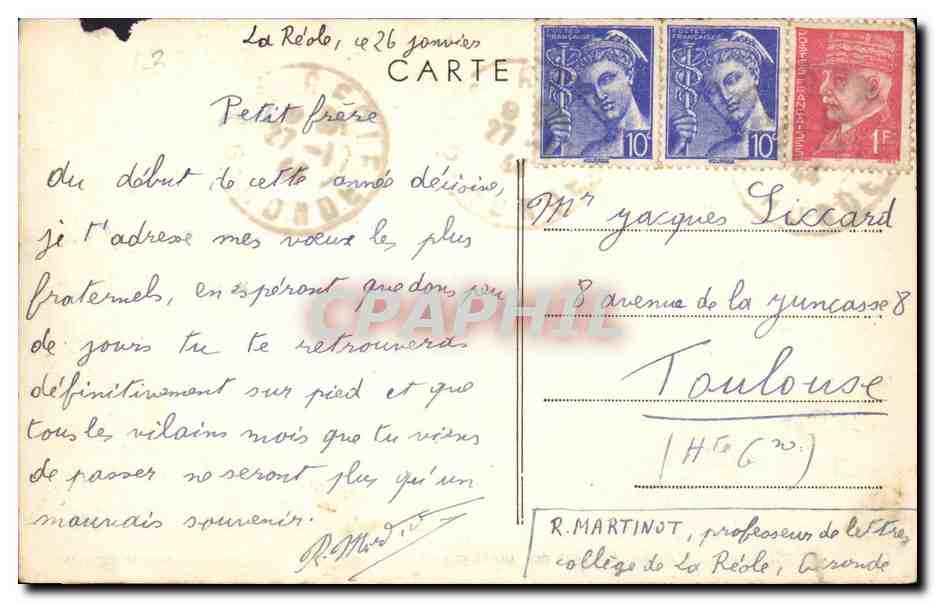 La Réole, ce 26 janvier
CARTE
Petit frère
du début de cette année décisive,
je t'adresse mes vœux les plus
fraternels, en espéront que dans peu
de jours tu te retrouveras
définitivement sur pied et que
tous les vilains mois que tu viens
de passer ne seront plus qu'un
mauvais souvenir.
POSTES FRANÇAISES
10c
POSTES FRANÇAISES
10c
POSTES FRANÇAISES
1F
Mr Jacques Siccard
8 avenue de la Juncasse 8
Toulouse
(Hte Gne)
R. MARTINOT, professeur de lettres
collège de La Réole, Gironde
CPAPHIL